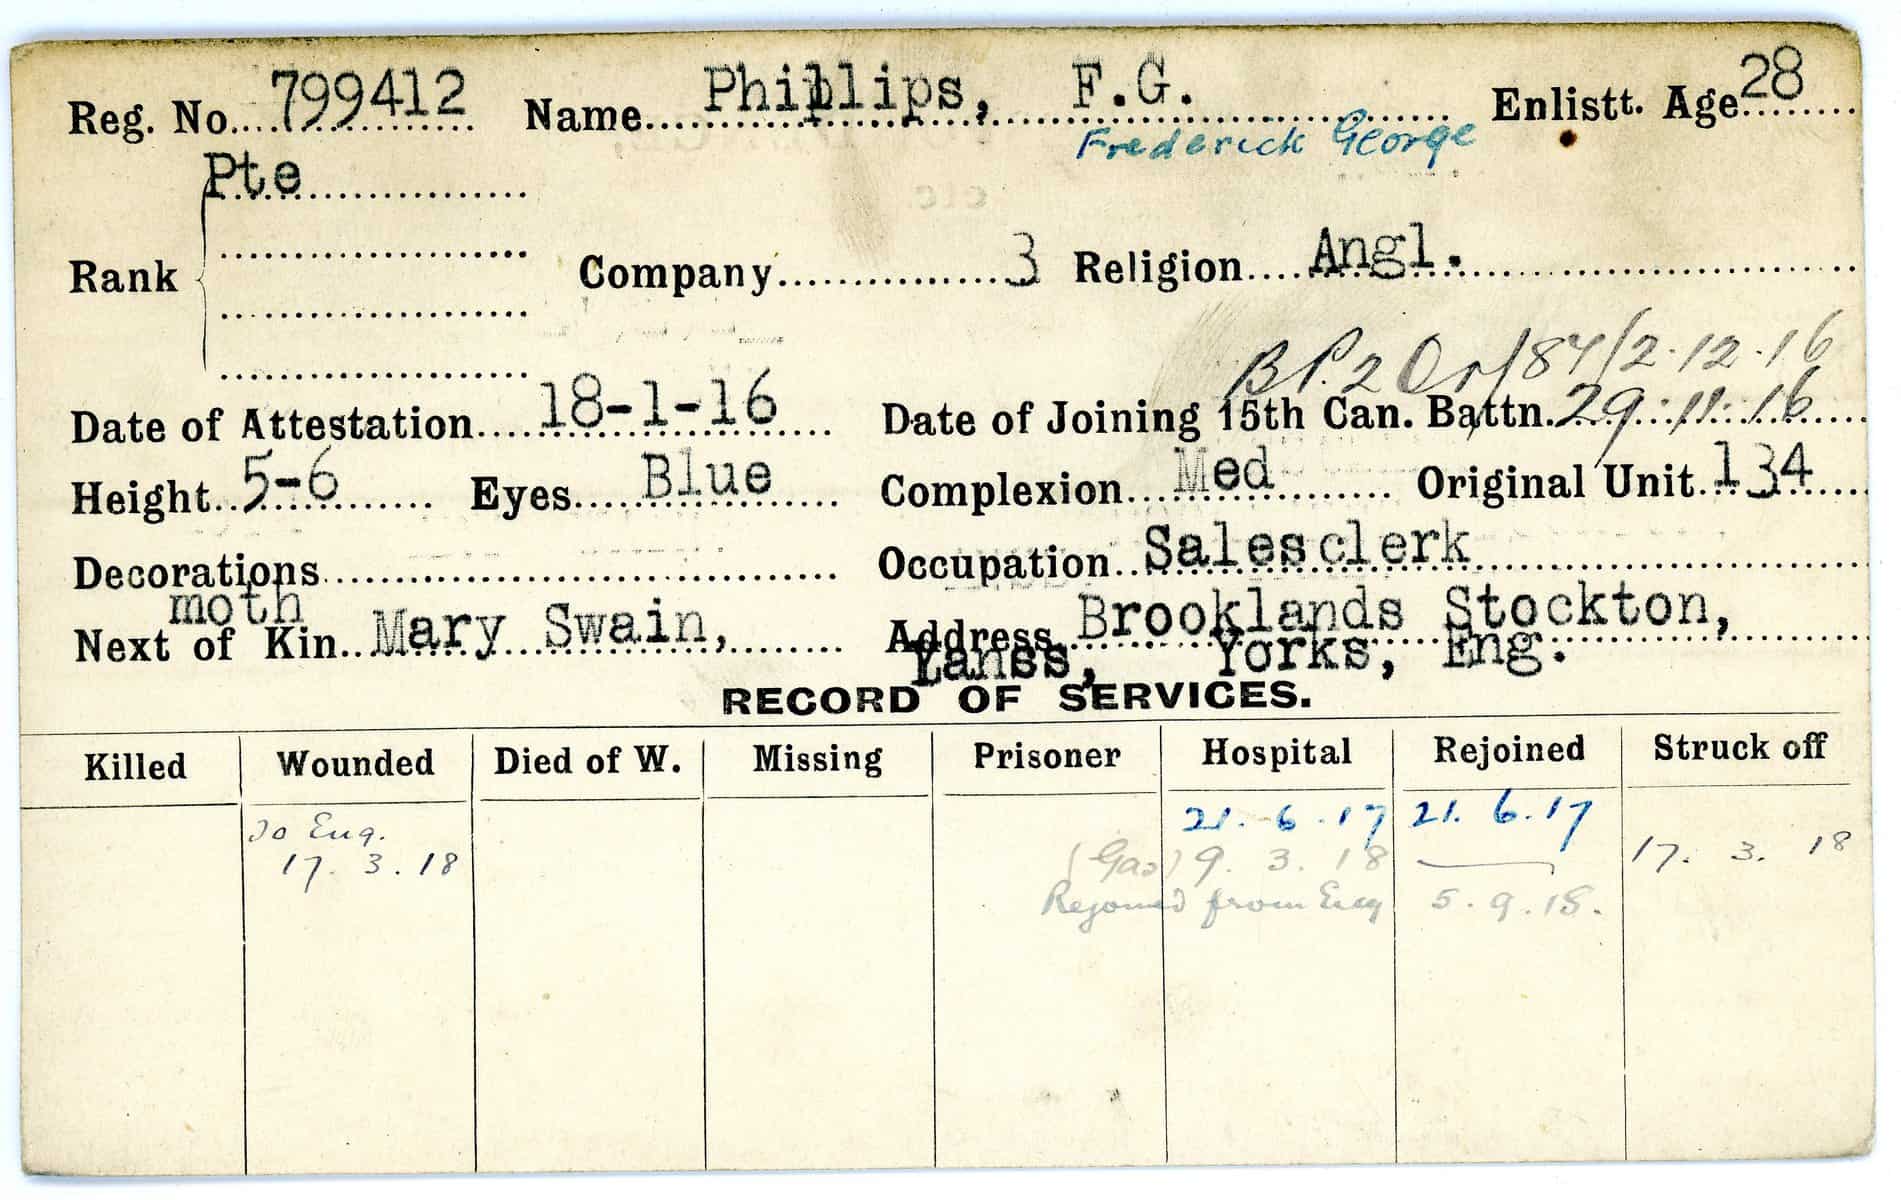 Reg. No. 799412 Name Phillips, F.G. Enlistt. Age 28
Frederick George
Pte
Rank Company 3 Religion Angl.
B.P.2 Or/87/2.12.16
Date of Attestation 18-1-16 Date of Joining 15th Can. Battn. 29.11.16
Height 5-6 Eyes Blue Complexion Med Original Unit 134
Decorations Occupation Salesclerk
moth
Next of Kin Mary Swain, Address Brooklands Stockton,
Yorks, Eng.
RECORD OF SERVICES.
Killed Wounded Died of W. Missing Prisoner Hospital Rejoined Struck off
To Eng. 21.6.17 21.6.17
17.3.18 (Gas) 9.3.18 17.3.18
Rejoined from Eng 5.9.18.